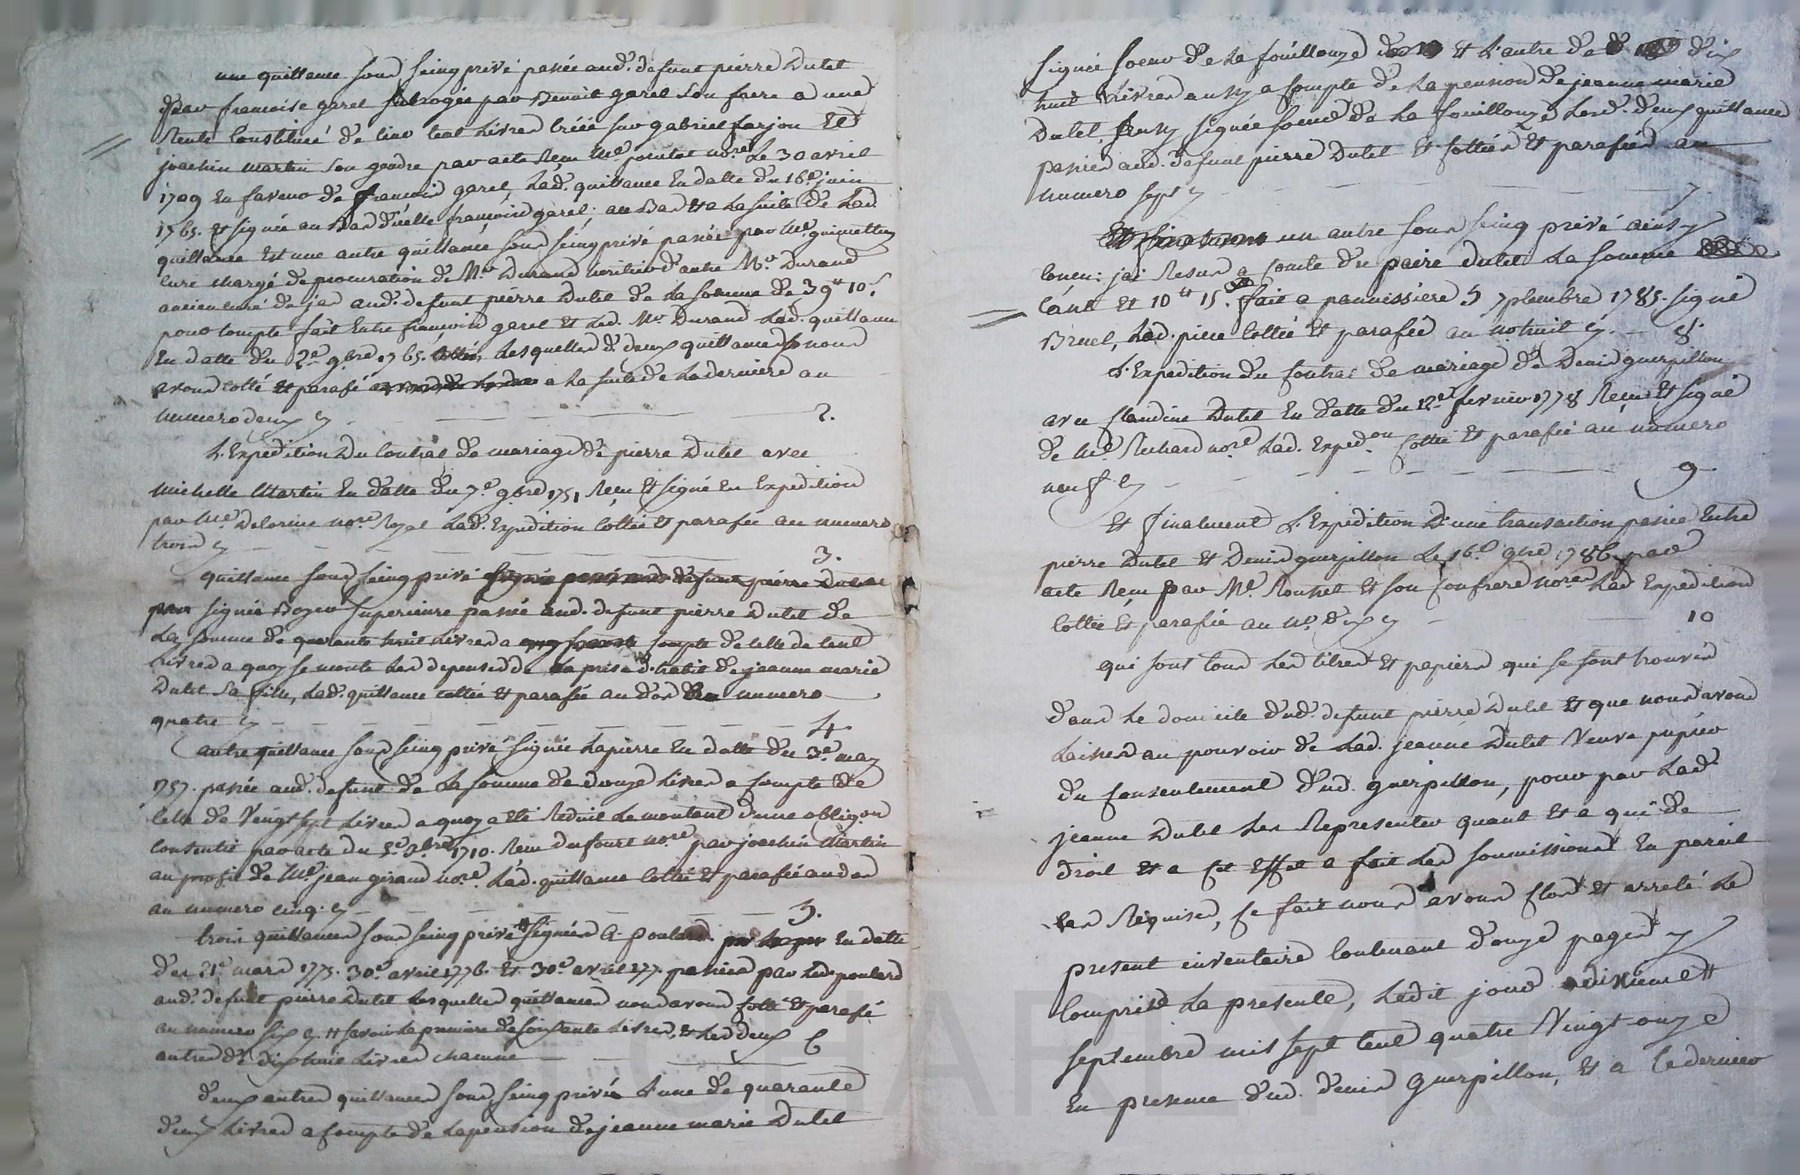 une quittance sous seing privé passée aud. defunt pierre Dutel
par francoise garel subrogée par Benoit garel son frere a une
Rente Constitué de cinq cent Livres créée sur gabriel farjon Et
joachin martin son gendre par acte Reçu Me nore. Le 30 avril
1709 En faveur de francois garel, Lad. quittance En datte du 16e juin
1765. Et signée au Bas d'icelle françoise garel; au Bas Et a La suite de Lad.
quittance Est une autre quittance sous seing privé passée par Me.
Curé chargé de procuration de Mr Durand heritier d'autre Mr. Durand
ancien curé de ja aud. defunt pierre Dutel de La somme de 39tt 10s.
pour Compte fait Entre francoise garel Et Led. Mr. Durand Lad. quittance
En datte du 2e 9bre 1765. Lesquelles d. deux quittances nous
avons cotté Et parafé a La suite de La derniere au
numero deux 2.
L'Expedition Du Contrat de mariage de pierre Dutel avec
michelle Martin En datte du 7e 9bre 1751 Reçu Et signé En Expedition
par Me Delorme nore Royal Lad. Expedition Cottée Et parafée au numero
trois 3.
quittance sous seing privé
signée Boyer superieure passée aud. defunt pierre Dutel de
La somme de quarante huit Livres a Compte de celle de cent
Livres a quoy se monte Les depenses de La prise d'habit de jeanne marie
Dutel sa fille, Lad. quittance cottée Et parafée au dos numero
quatre 4
autre quittance sous seing privé signée Lapierre En datte du 3e. may
1757. passée aud. defunt de La somme de douze Livres a Compte de
celle de Vingt sept Livres a quoy a été Reduit Le montant d'une obligon
Consentie par acte du 5e 1710. Reçu dufour nore. par joachin Martin
au profit de Me jean giraud nore. Lad. quittance Cottée Et parafée au dos
au numero cinq. 5.
trois quittances sous seing privé signées En datte
des 21e mars 1775. 30e avril 1776. Et 30e avril 177. passées par Led. poulard
aud. defunt pierre Dutel Lesquelles quittances nous avons Cotté Et parafé
au numero six savoir La premiere de soixante Livres, Et Les deux 6
autres de dix huit Livres chacune
deux autres quittances sous seing privé L'une de quarante
deux Livres a Compte de La pension de jeanne marie Dutel
signée soeur de La fouillouze Et L'autre de dix
huit Livres aussy a Compte de La pension de jeanne marie
Dutel, aussy signée soeur de La fouillouze Lesd. deux quittances
passées aud. defunt pierre Dutel Et Cottées Et parafées au
numero sept 7.
un autre sous seing privé ainsy
Concu: jai Resus a Comte du paire dutel La somme
Cant Et 10tt 15s. fait a pannissiere 5 7ptembre 1785. signé
Bruel, Lad. piece Cottée Et parafée au no huit 8.
L'Expedition du Contrat de mariage de Denis guerpillon
avec Claudine Dutel En datte du 12e fevrier 1778 Reçu Et signé
de Me Richard nore. Lad. Expedon Cottée Et parafée au numero
neuf 9
Et finalement L'Expedition D'une transaction passée Entre
pierre Dutel Et Denis guerpillon Le 16e 9bre 1786 par
acte Reçu par Me. Et son Confrere nores Lad Expedition
Cottée Et parafée au no. dix 10
qui sont tous Les titres Et papiers qui se sont trouvés
dans Le domicile dud. defunt pierre Dutel Et que nous avons
Laissés au pouvoir de Lad. jeanne Dutel Veuve papier
du Consentement dud. guerpillon, pour par Lad.
jeanne Dutel Les Representer quant Et a qui de
droit Et a Cet Effet a fait Les soumissions En pareil
Cas Requises, Ce fait nous avons Clos Et arreté Le
present inventaire Contenant douze pages y
Compris La presente, Ledit jour dixieme
septembre mil sept Cent quatre Vingt onze
En presence dud. denis guerpillon, Et a Ce dernier